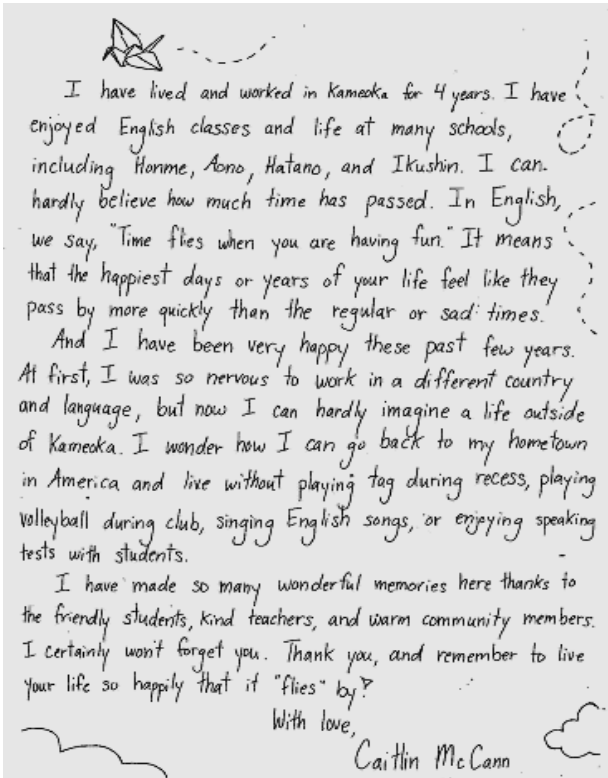 I have lived and worked in Kameoka for 4 years. I have
enjoyed English classes and life at many schools,
including Honme, Aono, Hatano, and Ikushin. I can
hardly believe how much time has passed. In English,
we say, "Time flies when you are having fun." It means
that the happiest days or years of your life feel like they
pass by more quickly than the regular or sad times.
And I have been very happy these past few years.
At first, I was so nervous to work in a different country
and language, but now I can hardly imagine a life outside
of Kameoka. I wonder how I can go back to my hometown
in America and live without playing tag during recess, playing
volleyball during club, singing English songs, or enjoying speaking
tests with students.
I have made so many wonderful memories here thanks to
the friendly students, kind teachers, and warm community members.
I certainly won't forget you. Thank you, and remember to live
your life so happily that it "flies" by!
With love,
Caitlin McCann